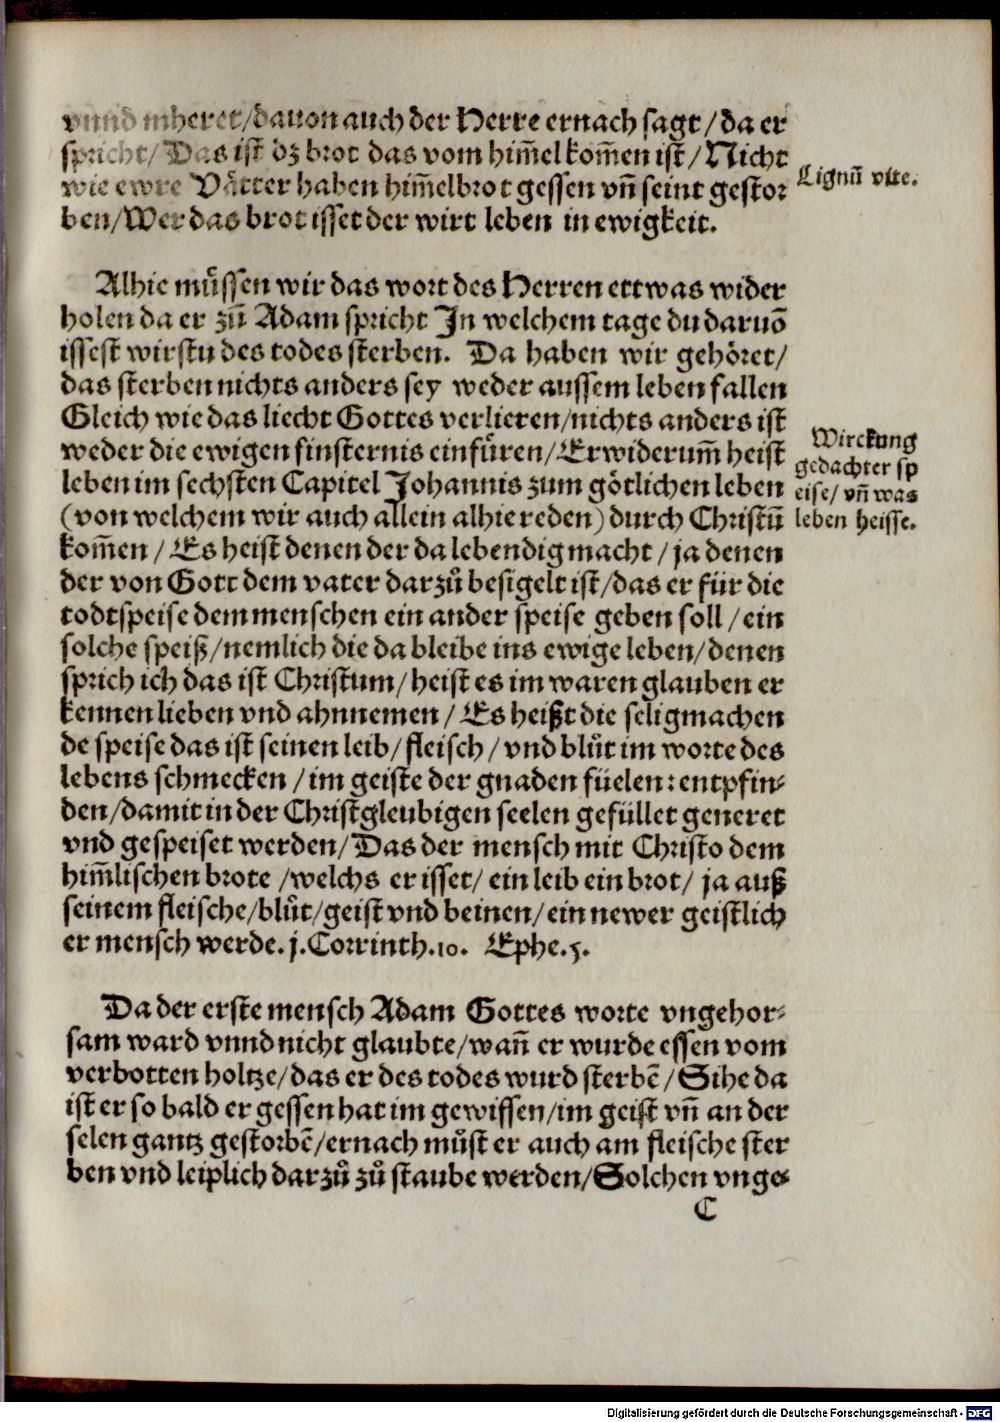 vnnd mheret/dauon auch der Herre ernach sagt/da er
spricht/Das ist dz brot das vom him̄el kom̄en ist/Nicht
wie ewre Vätter haben him̄elbrot gessen vn̄ seint gestor
ben/Wer das brot isset der wirt leben in ewigkeit.
Lignū vite.
Alhie müssen wir das wort des Herren ettwas wider
holen da er zū Adam spricht In welchem tage du daruō
issest wirstu des todes sterben. Da haben wir gehöret/
das sterben nichts anders sey weder aussem leben fallen
Gleich wie das liecht Gottes verlieren/nichts anders ist
weder die ewigen finsternis einfüren/Erwiderum̄ heist
leben im sechsten Capitel Johannis zum götlichen leben
(von welchem wir auch allein alhie reden) durch Christū
kom̄en/Es heist denen der da lebendig macht/ja denen
der von Gott dem vater darzů besigelt ist/das er für die
todtspeise dem menschen ein ander speise geben soll/ein
solche speiß/nemlich die da bleibe ins ewige leben/denen
sprich ich das ist Christum/heist es im waren glauben er
kennen lieben vnd ahnnemen/Es heißt die seligmachen
de speise das ist seinen leib/fleisch/vnd blůt im worte des
lebens schmecken/im geiste der gnaden füelen: entpfin-
den/damit in der Christgleubigen seelen gefüllet generet
vnd gespeiset werden/Das der mensch mit Christo dem
him̄lischen brote/welchs er isset/ein leib ein brot/ja auß
seinem fleische/blůt/geist vnd beinen/ein newer geistlich
er mensch werde. j. Corrinth. 10. Ephe. 5.
Wirckung
gedachter sp
eise/vn̄ was
leben heisse.
Da der erste mensch Adam Gottes worte vngehor-
sam ward vnnd nicht glaubte/wan̄ er wurde essen vom
verbotten holtze/das er des todes wurd sterbē/Sihe da
ist er so bald er gessen hat im gewissen/im geist vn̄ an der
selen gantz gestorbē/ernach můst er auch am fleische ster
ben vnd leiplich darzů zů staube werden/Solchen vnge-
C
Digitalisierung gefördert durch die Deutsche Forschungsgemeinschaft - DFG